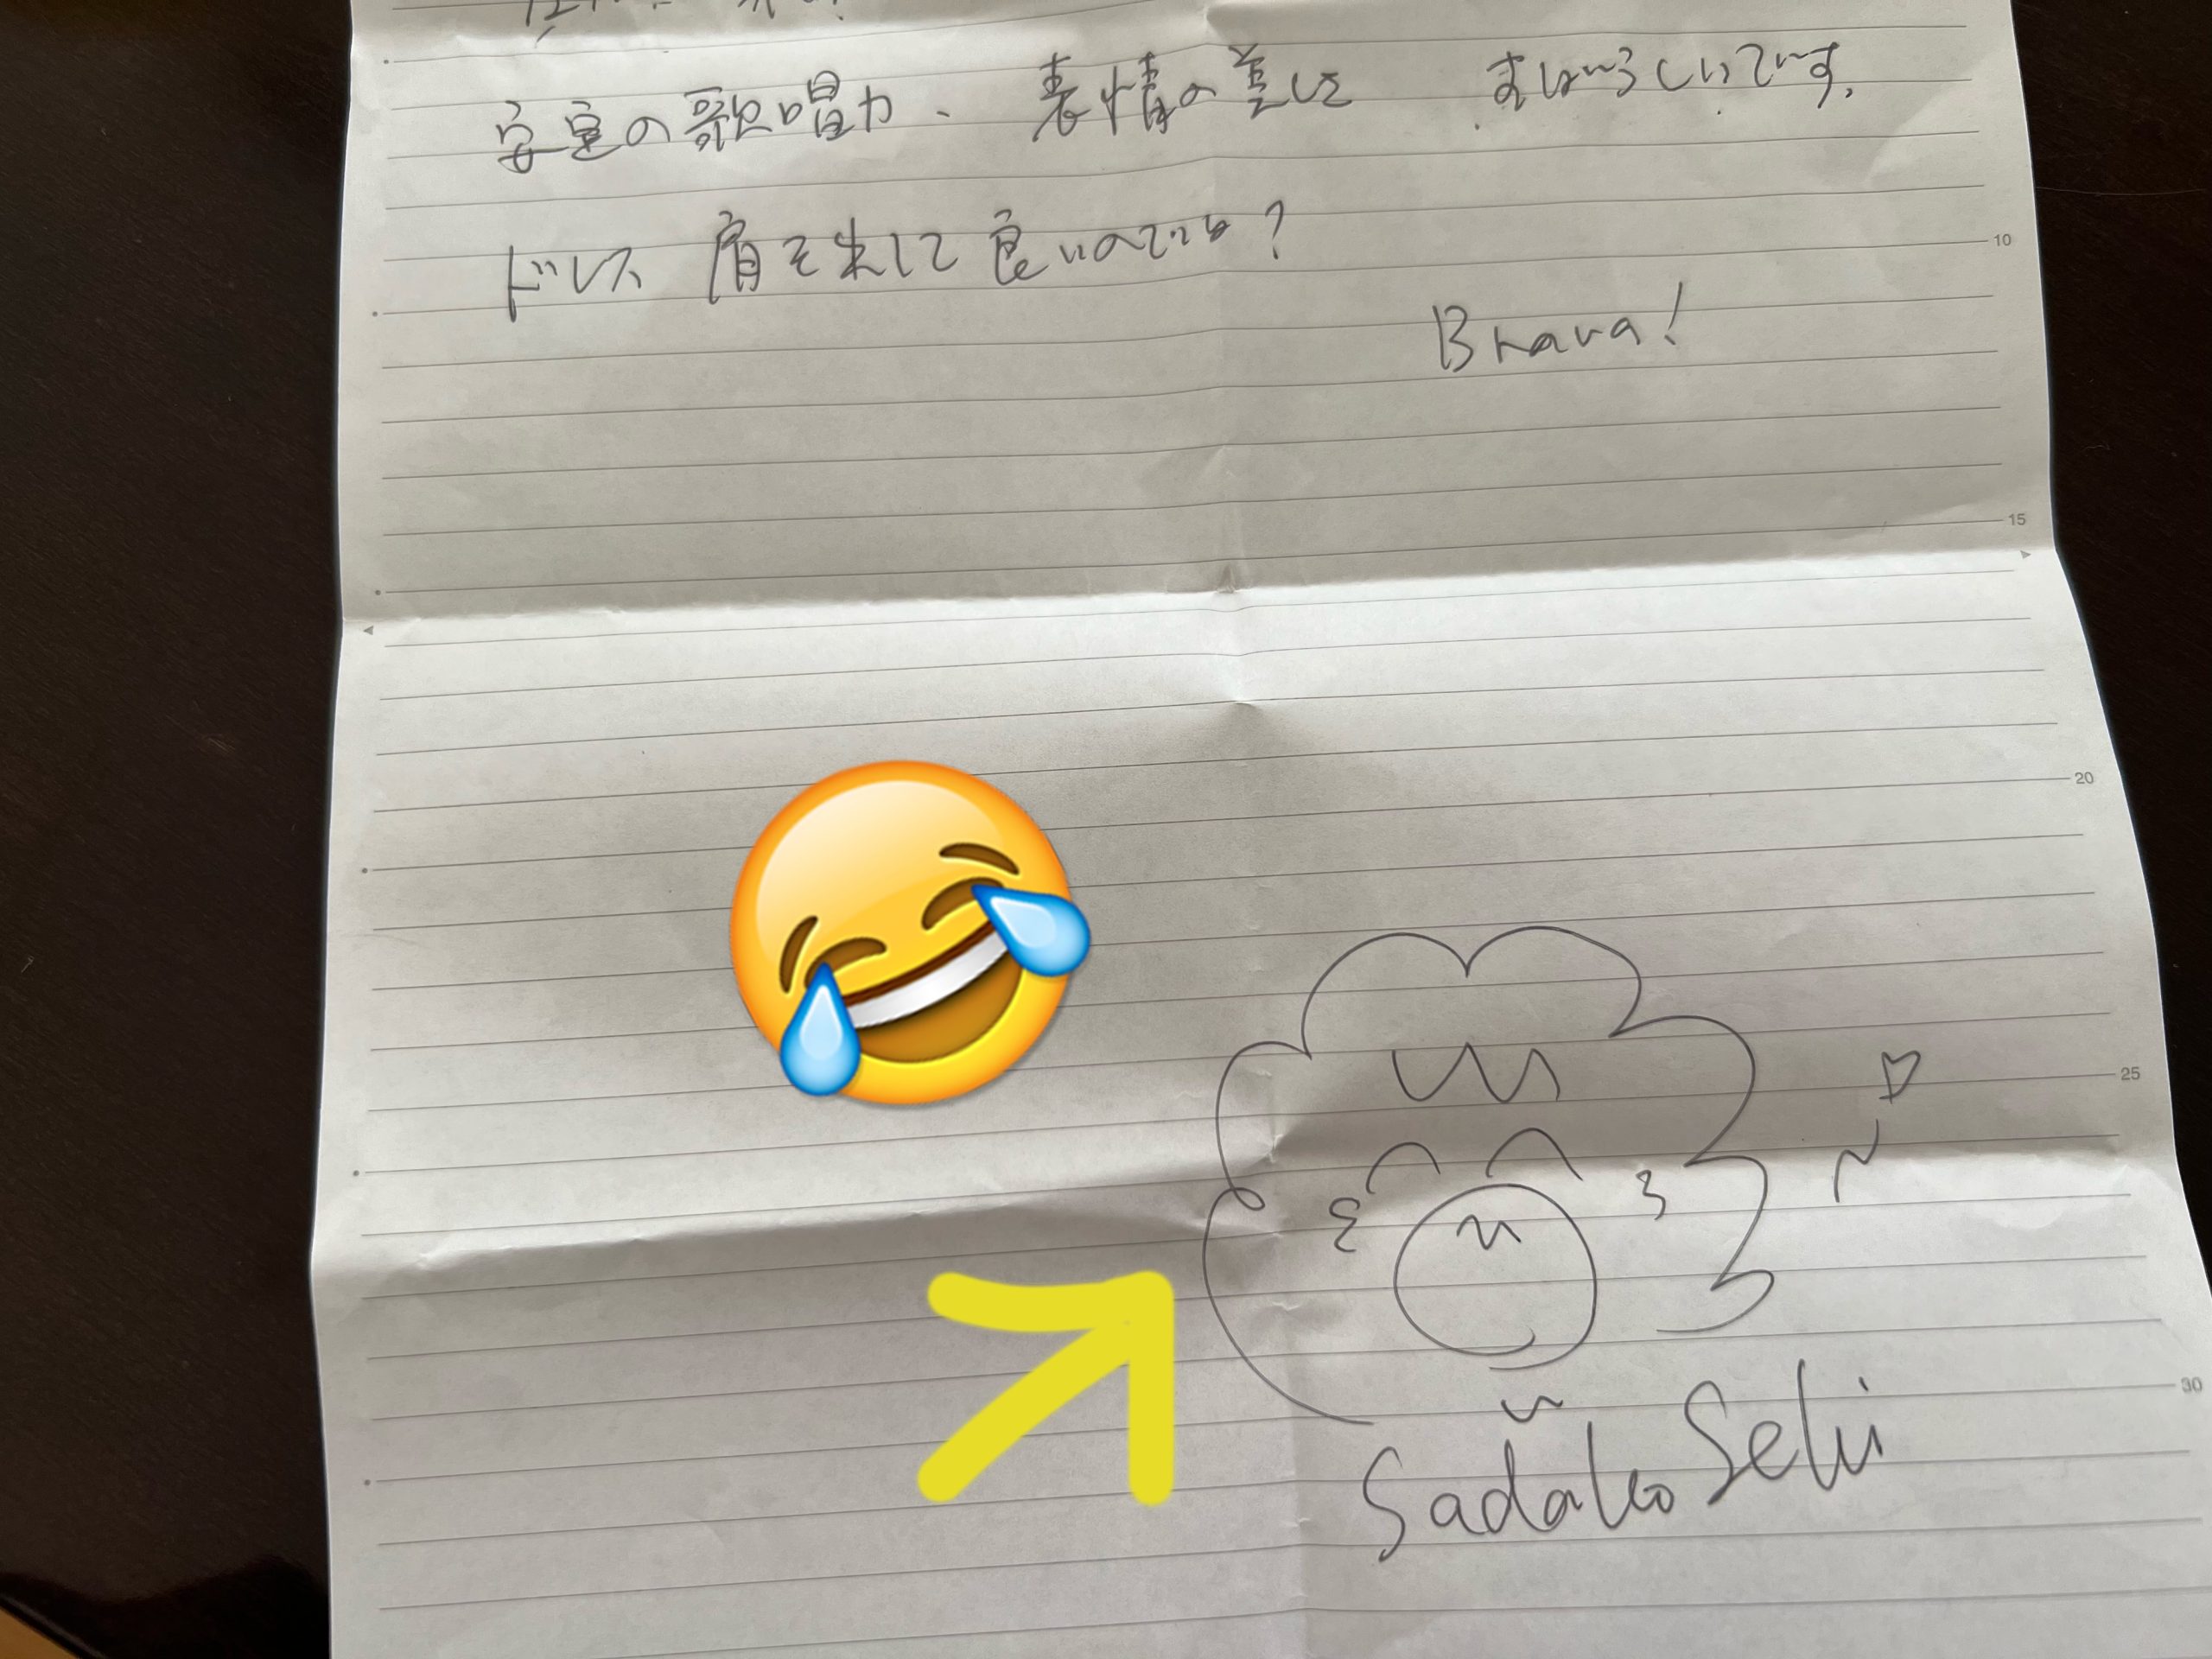 安定の歌唱力、表情の美しさ すばらしいです。
ドレス 肩を出して良いのでは?
Brava!
10
15
20
25
30
Sadako Seki